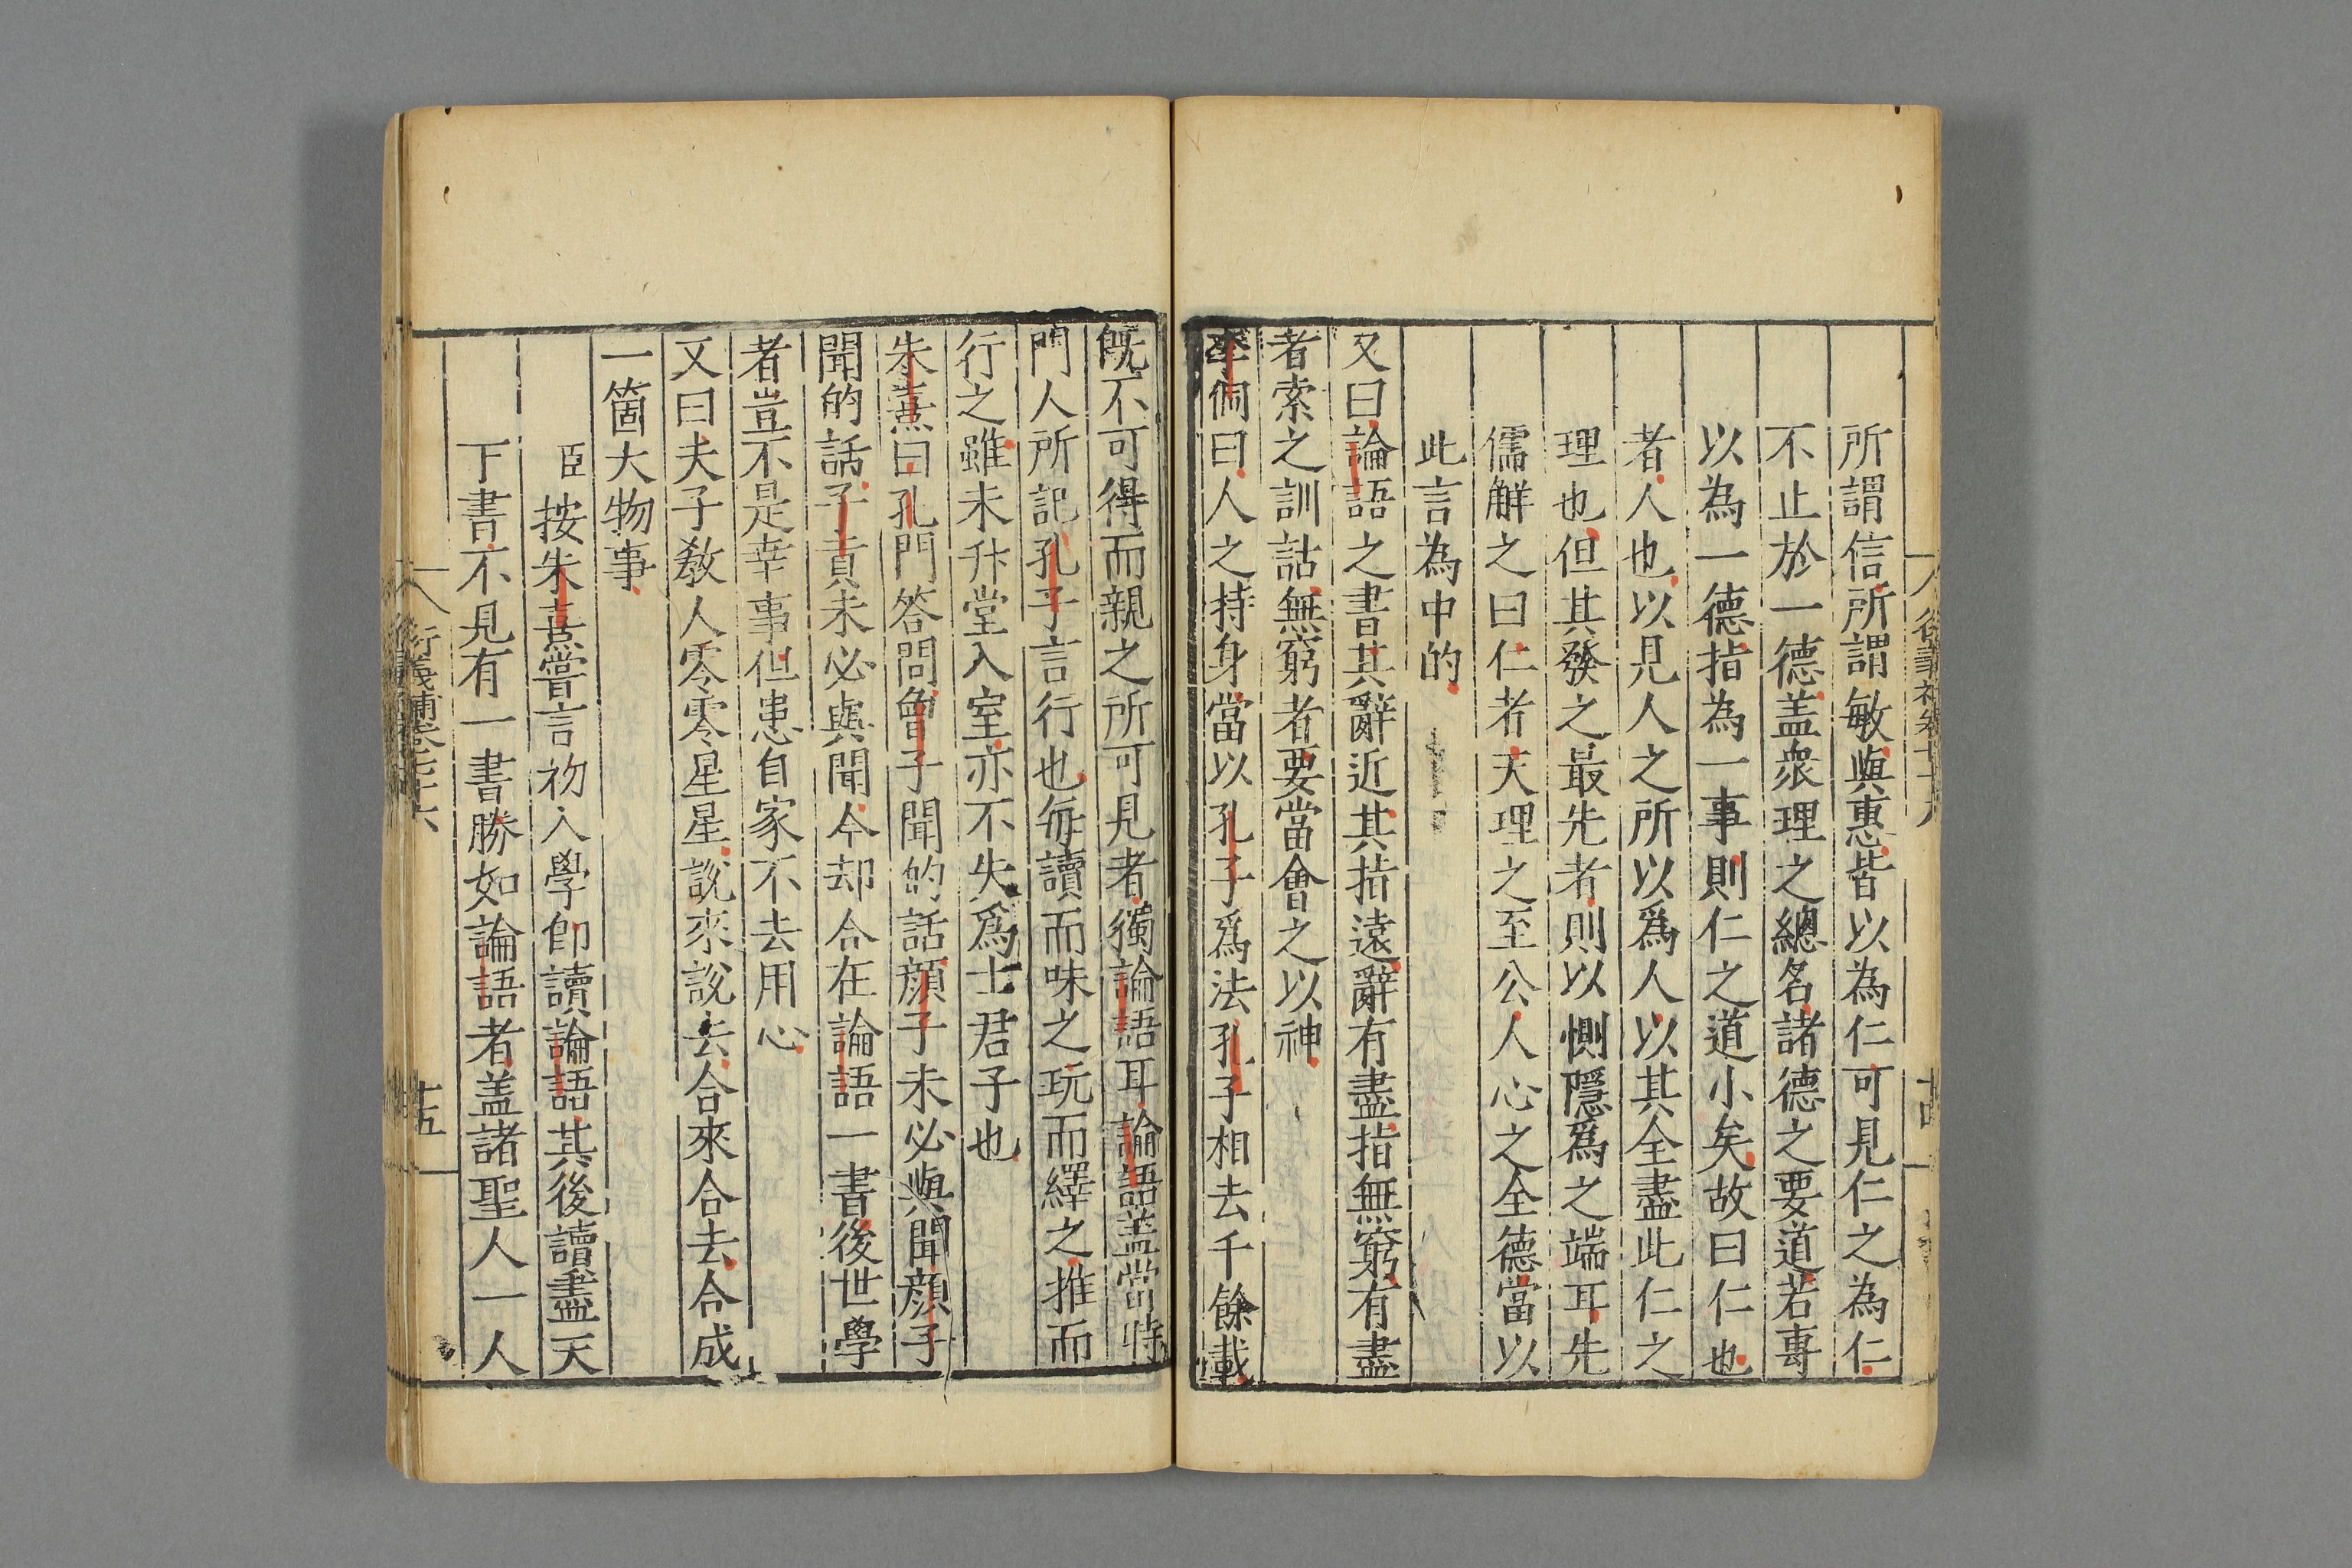 所謂信所謂敏與惠皆以為仁可見仁之為仁
不止於一德盖衆理之總名諸德之要道若專
以為一德指為一事則仁之道小矣故曰仁也
者人也以見人之所以爲人以其全盡此仁之
理也但其發之最先者則以惻隱爲之端耳先
儒解之曰仁者天理之至公人心之全德當以
此言為中的
又曰論語之書其辭近其指遠辭有盡指無窮有盡
者索之訓詁無窮者要當會之以神
李侗曰人之持身當以孔子爲法孔子相去千餘載
既不可得而親之所可見者獨論語耳論語盖當時
門人所記孔子言行也每讀而味之玩而繹之推而
行之雖未升堂入室亦不失爲士君子也
朱熹曰孔門答問曾子聞的話顏子未必與聞顏子
聞的話子貢未必與聞今却合在論語一書後世學
者豈不是幸事但患自家不去用心
又曰夫子教人零零星星說來說去合來合去合成
一箇大物事
臣按朱熹嘗言初入學卽讀論語其後讀盡天
下書不見有一書勝如論語者盖諸聖人一人
衍義補卷七十六
十五